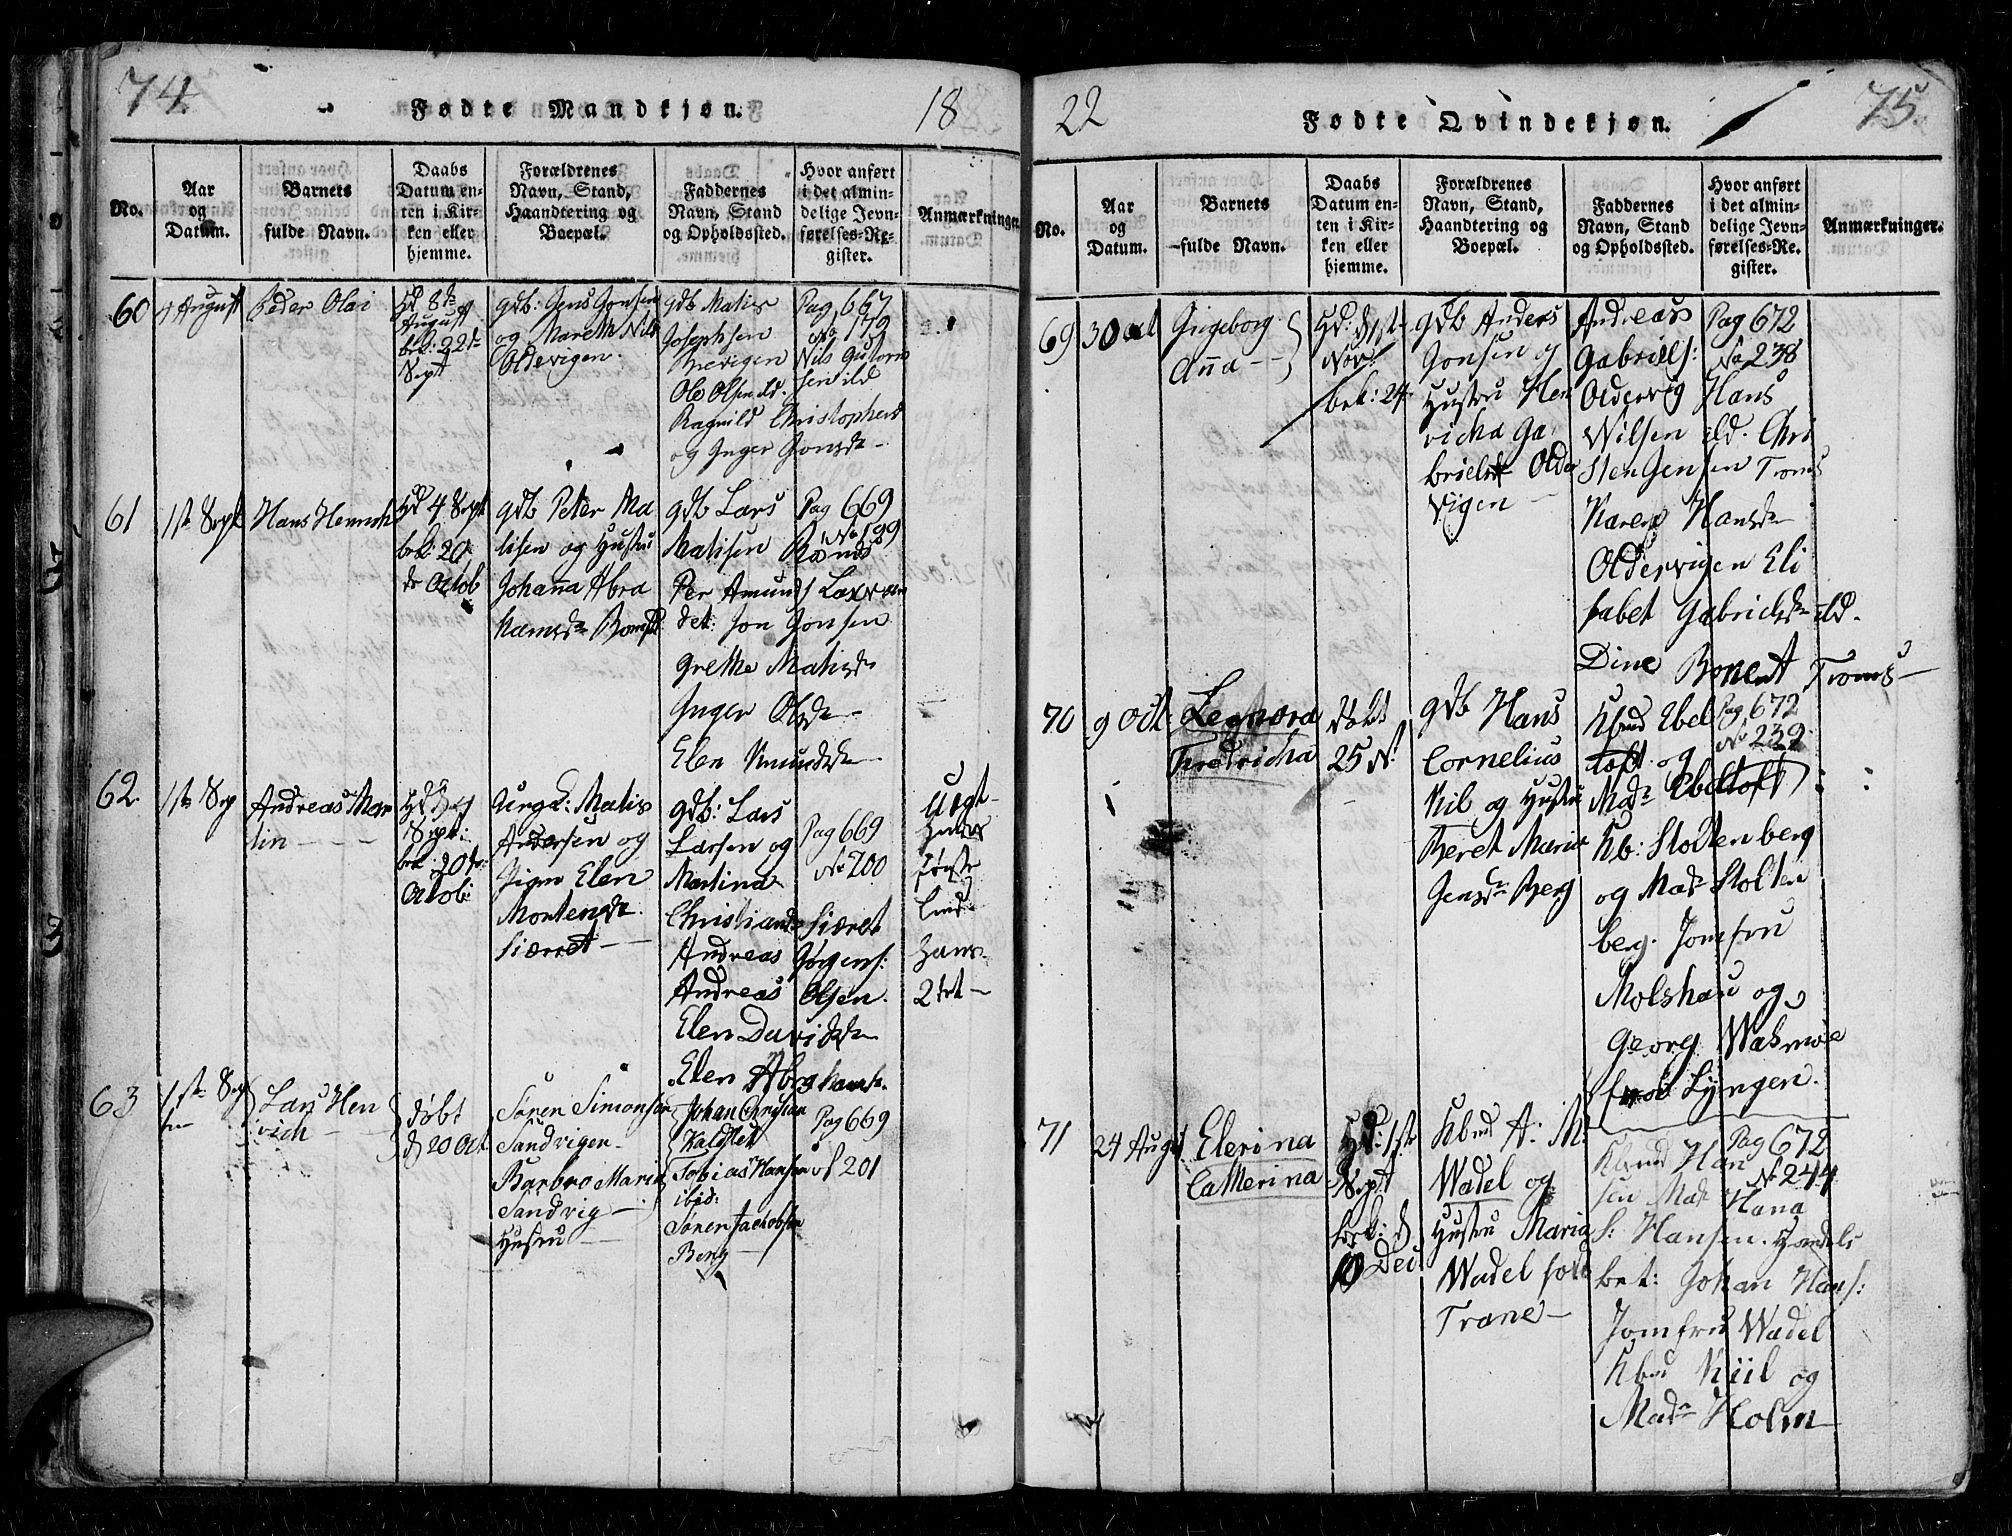 74
Fødte Mandkjøn.
18
No.
Aar
og
Datum.
Barnets
fulde Navn.
Daabs
Datum en-
ten i Kir-
ken eller
hjemme.
Forældrenes
Navn, Stand,
Haandtering og
Boepæl.
Faddernes
Navn, Stand
og Opholdssted.
Hvor anført
i det almin-
delige Jevn-
førelses-Re-
gister.
Anmærkninger.
60
August
Peder Olai
Hd 8de
August
bek: 22de
Sept
gdb: Jens Jonsen
og Marethe Nils
Oldevigen.
gdb Matis
Josephsen
Brevigen
Ole Olsen ild.
Ragnild Christophersd
og Inger Jonsd
Pag 667
No 179
Nils Guttorm
sen ild
61
1ste Sept
Hans Henrich
Hd 4 Sept
bek: 20
de Octob
gdb Peter Ma
tisen og Hustru
Johanna Abra
hamsdr
gdb Lars
Matisen
Per Amunds
det: Jon Jonsen
Grethe Matisdr
Inger Olsdr
Elen Knudsdr
Pag 669
No 199
62.
1ste Sep
Andreas Mar
tin
Sept:
bek: 20de
Octob:
Ungk: Matis
Andersen og
Pigen Elen
Mortensdr
Siærret
gdb: Lars
Larsen og
Martina
Christiansdr Siæret
Andreas Jørgens:
Andreas Olsen
Elen Davidsdr
Elen Abrahamsdr.
Pag 669
No 200
Uægt
hans
første
hans
2det
63
1ste Sep
Lars Hen
rich
døbt
d 20 Oct
Søren Simonsen
Sandvigen
Barbro Maria
Sandvig
Hustru
Johan Christian
Kaldsted
Tobias Hansen
ibid:
Søren Jachobsen
Berg
Pag 669
No 201
22
Fødte Qvindekjøn.
75.
No.
Aar
og
Datum.
Barnets
fulde Navn.
Daabs
Datum en-
ten i Kir-
ken eller
hjemme.
Forældrenes
Navn, Stand,
Haandtering og
Boepæl.
Faddernes
Navn, Stand
og Opholdssted.
Hvor anført
i det almin-
delige Jevn-
førelses-Re-
gister.
Anmærkninger.
69
30 Oct
Ingeborg
Anna
Hd: 1ste
Nov:
bek: 24
gdb Anders
Jonsen og
Hustru Hen
richa Ga
brielsdr Older
vigen
Andreas
Gabriels:
Oldervig Hans
Nilsen ild. Chri
sten Jensen Troms
Karen Hansdr
Oldervigen Eli
sabet Gabrielsdr ild.
Dine Bonent Troms
Pag 672
No 238
70
9 Oct:
Leonora
Fredricha
døbt
25 N:
gdb Hans
Cornelius
Kil og Hustru
Beret Maria
Jensdr Berg
Kbmd Ebel
toft og
Madm Ebeltoft
Kb: Stoltenberg
og Madm Stolten
berg. Jomfru
Molshau og
Georg Wasmoe
fra Lyngen.
Pag 672
No 239
71
24 Aug:
Elerina
Catherina
Hd: 1ste
Sept
bek: d
10 Dec
Kbmd A: M:
Wadel og
Hustru Maria
Wadel født
Trane
Kbmd Han
sen Mad Hana
S: Hansen. Handels
bet: Johan Hans:
Jomfru Wadel
Kbmd Kiil og
Madm Holm
Pag 672
No 244